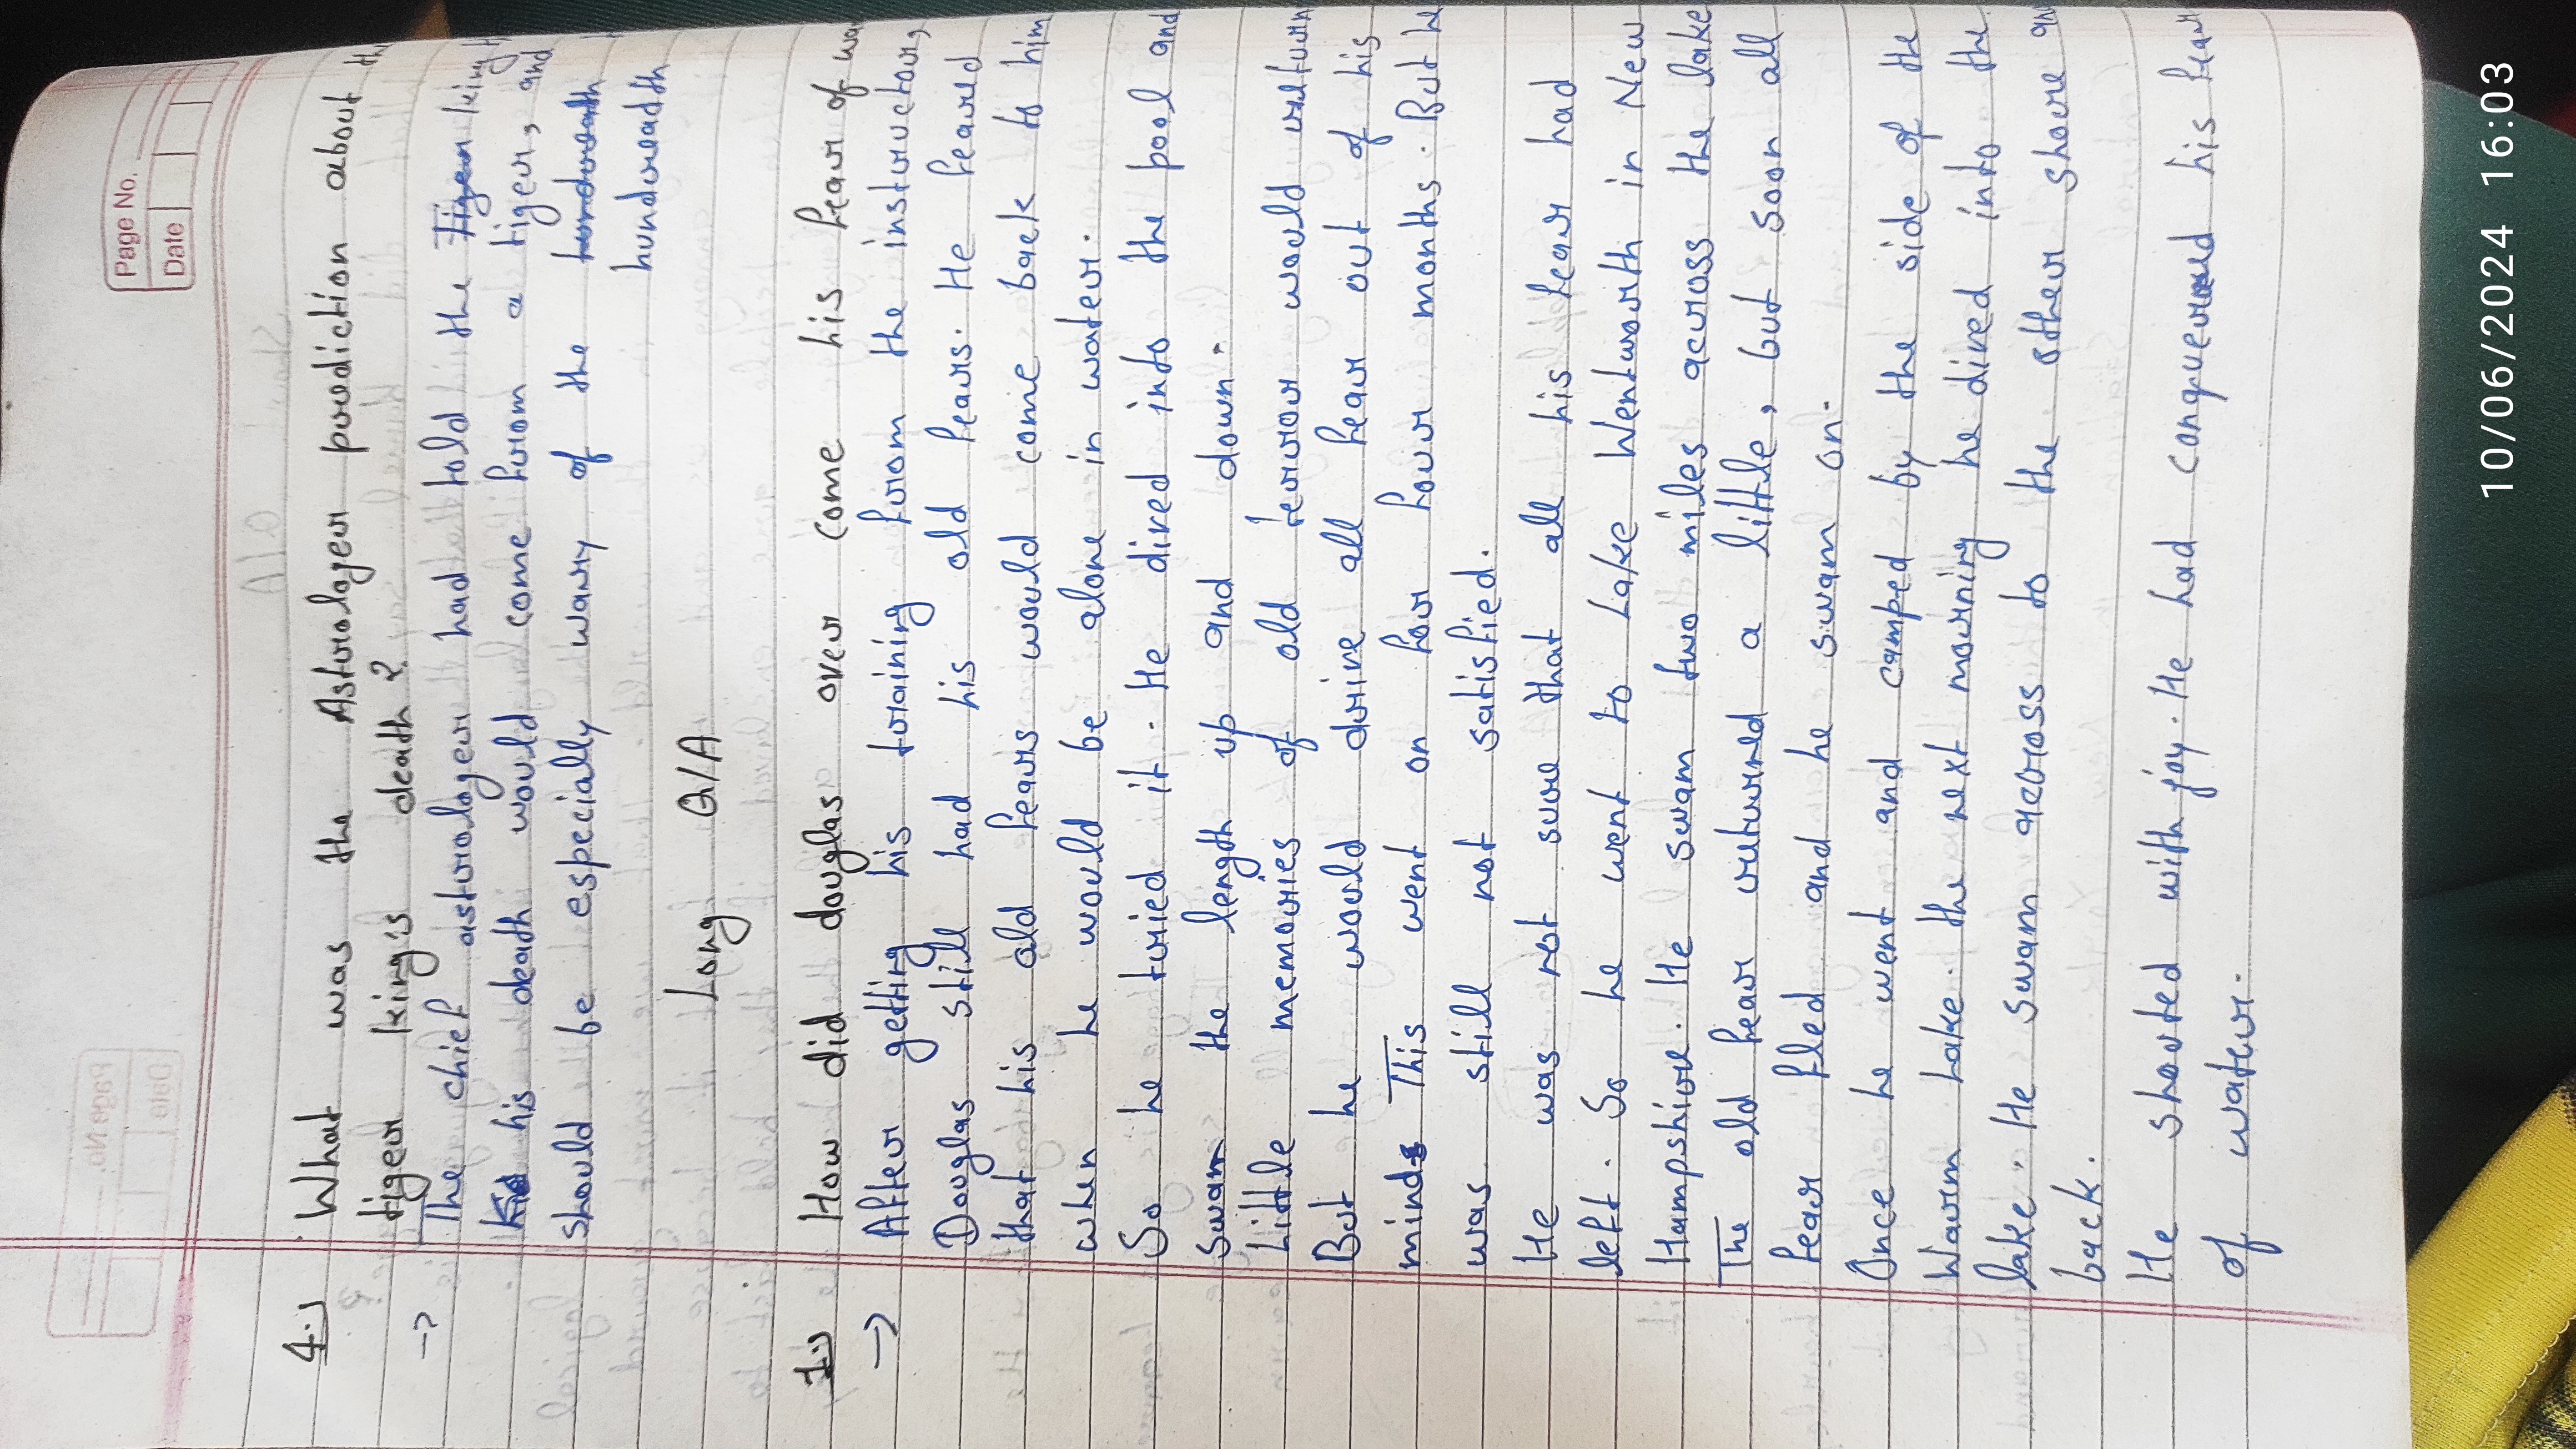 Page No.
Date
4.) What was the Astrologer prediction about
tiger king's death?
→ The chief astrologer had told the Tiger king
his death would come from a tiger, and
should be especially wary of the hundreath
hundreadth
Long Q/A
1.) How did douglas over come his fear of
→ After getting his training from the instructour,
Douglas still had his old fears. He feared
that his old fears would come back to him
when he would be alone in water.
So he tried it. He dived into the pool and
swam the length up and down.
Little memories of old terror would return
But he would drive all fear out of his
mind. This went on for four months. But he
was still not satisfied.
He was not sure that all his fear had
left. So he went to Lake Wentworth in New
Hampshire. He swam two miles across the lake
The old fear returned a little, but soon all
fear fled and he swam on.
Once he went and camped by the side of the
Warm Lake. the next morning he dived into the
lake. He swam across to the other shore and
back.
He shouted with joy. He had conquered his fear
of water.
10/06/2024 16:03